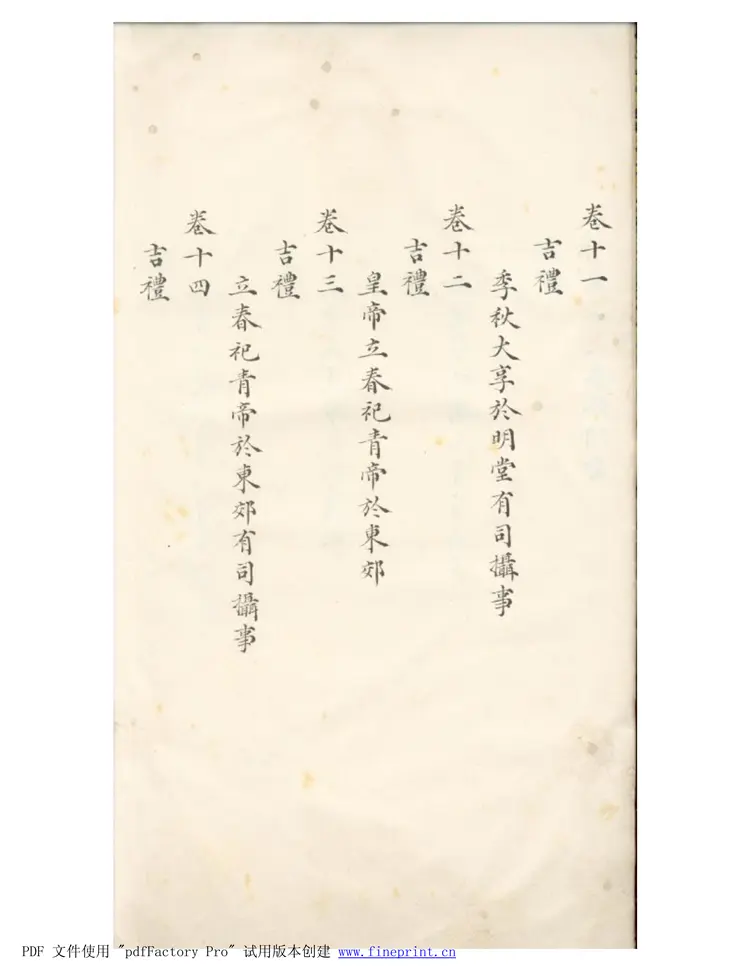 卷十一
吉禮
季秋大享於明堂有司攝事
卷十二
吉禮
皇帝立春祀青帝於東郊
卷十三
吉禮
立春祀青帝於東郊有司攝事
卷十四
吉禮
PDF 文件使用 "pdfFactory Pro" 试用版本创建 www.fineprint.cn